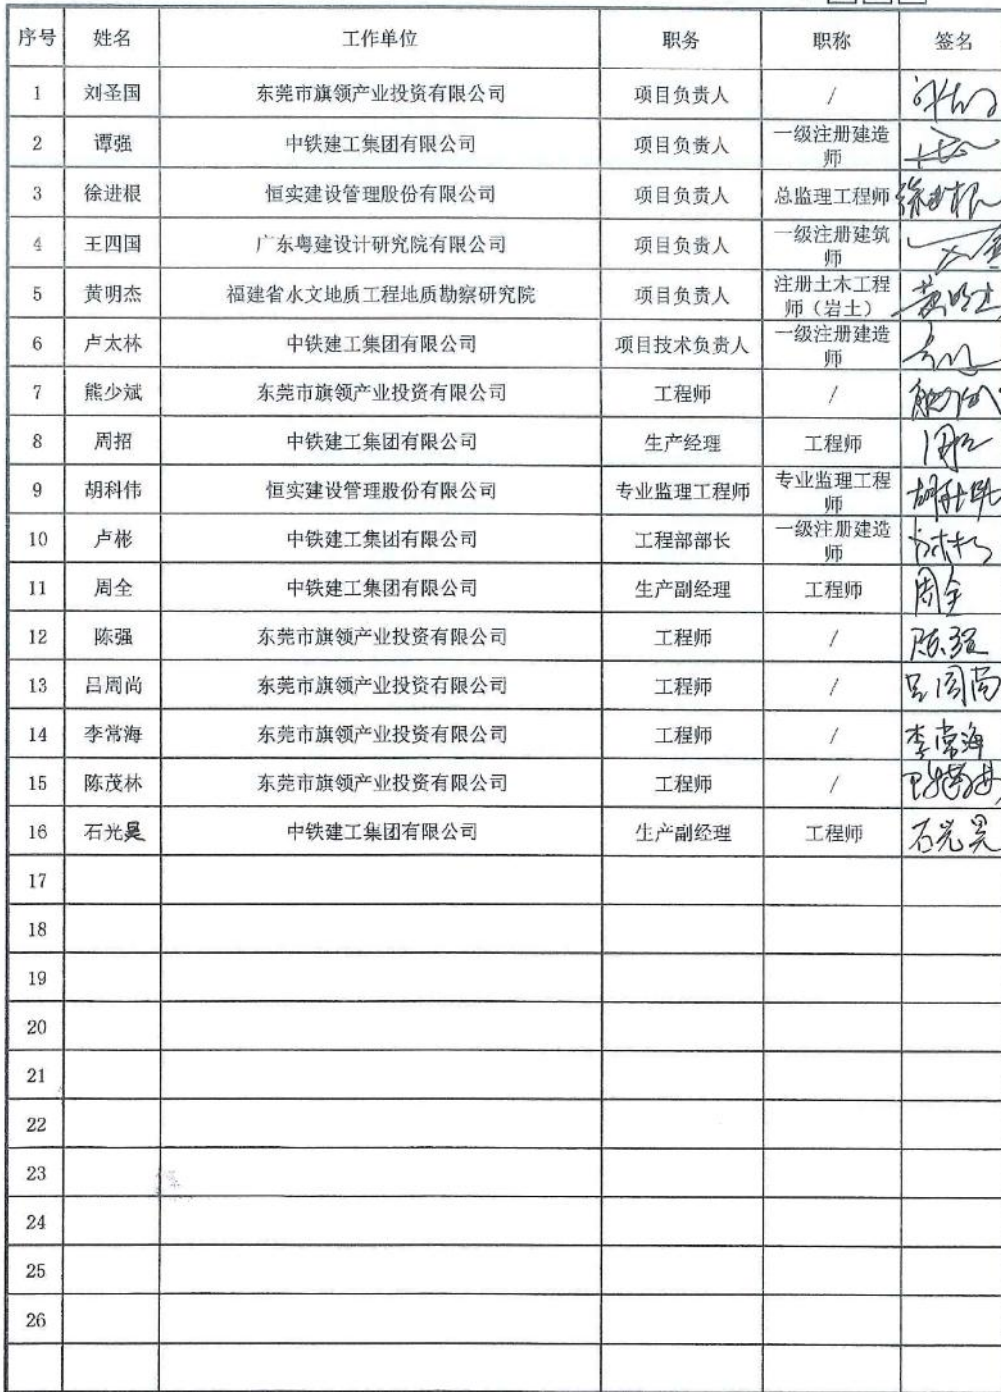 序号 姓名 工作单位 职务 职称 签名
1 刘圣国 东莞市旗领产业投资有限公司 项目负责人 /
2 谭强 中铁建工集团有限公司 项目负责人 一级注册建造师
3 徐进根 恒实建设管理股份有限公司 项目负责人 总监理工程师 徐进根
4 王四国 广东粤建设计研究院有限公司 项目负责人 一级注册建筑师
5 黄明杰 福建省水文地质工程地质勘察研究院 项目负责人 注册土木工程师（岩土） 黄明杰
6 卢太林 中铁建工集团有限公司 项目技术负责人 一级注册建造师
7 熊少斌 东莞市旗领产业投资有限公司 工程师 /
8 周招 中铁建工集团有限公司 生产经理 工程师 周招
9 胡科伟 恒实建设管理股份有限公司 专业监理工程师 专业监理工程师
10 卢彬 中铁建工集团有限公司 工程部部长 一级注册建造师
11 周全 中铁建工集团有限公司 生产副经理 工程师 周全
12 陈强 东莞市旗领产业投资有限公司 工程师 / 陈强
13 吕周尚 东莞市旗领产业投资有限公司 工程师 / 吕周尚
14 李常海 东莞市旗领产业投资有限公司 工程师 / 李常海
15 陈茂林 东莞市旗领产业投资有限公司 工程师 /
16 石光昊 中铁建工集团有限公司 生产副经理 工程师 石光昊
17
18
19
20
21
22
23
24
25
26